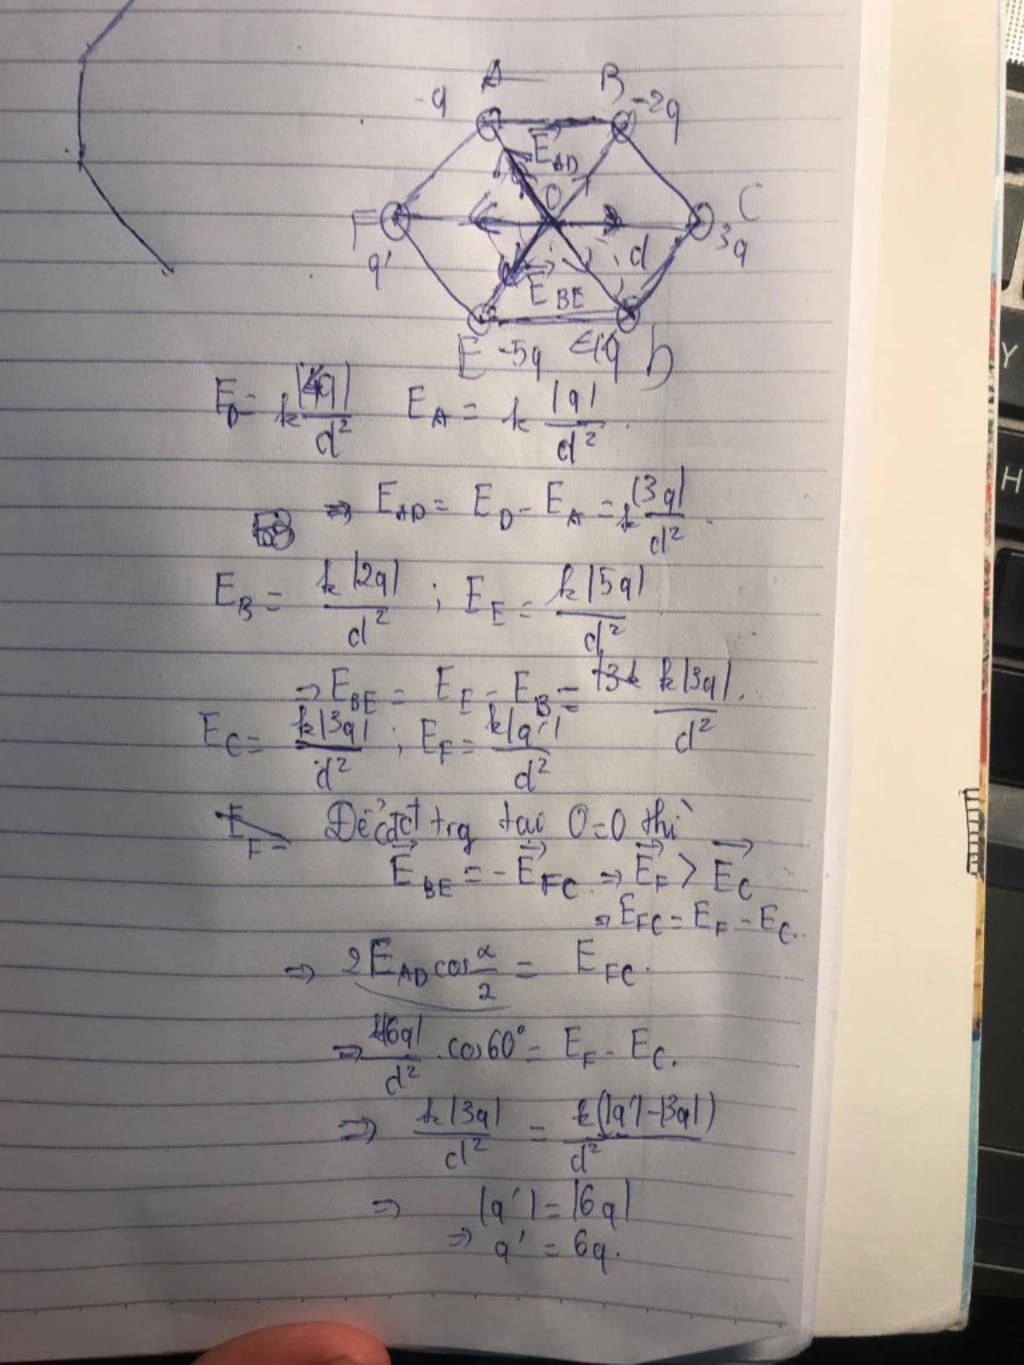 A B
-q -2q
E⃗_AD
O
F C
q' d 3q
E⃗_BE
E -5q 4q D
E_D = k|4q|/d² E_A = k|q|/d².
⇒ E_AD = E_D - E_A = k|3q|/d².
E_B = k|2q|/d² ; E_E = k|5q|/d²
⇒ E_BE = E_E - E_B = k|3q|/d².
E_C = k|3q|/d² ; E_F = k|q'|/d²
E_F = Để cđđt trg tại O=0 thì
E⃗_BE = - E⃗_FC ⇒ E⃗_F > E⃗_C
⇒ E_FC = E_F - E_C.
⇒ 2E_AD cos α/2 = E_FC.
⇒ |6q|/d² . cos60° = E_F - E_C.
⇒ k|3q|/d² = k(|q'|-|3q|)/d²
⇒ |q'| = |6q|
⇒ q' = 6q.
Y
H